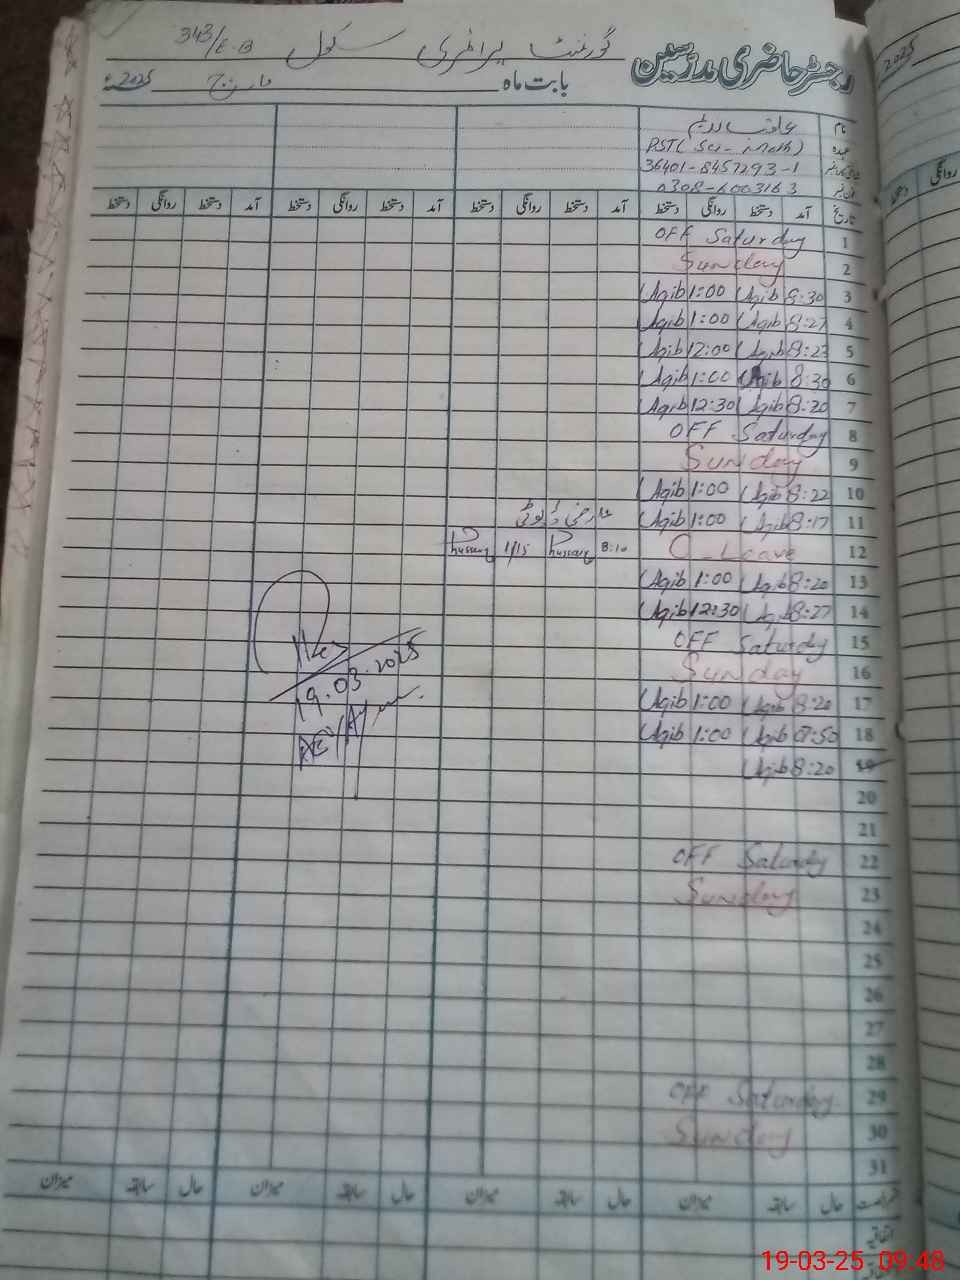 گورنمنٹ پرائمری سکول 343/E.B
رجسٹر حاضری مدرسین
بابت ماہ مارچ 2025ء
2025
نام
عہدہ PST( Sci- Math)
36401-8457293-1
0308-6003163
تاریخ آمد دستخط روانگی دستخط آمد دستخط روانگی دستخط آمد دستخط روانگی دستخط
روانگی دستخط
1 OFF Saturday
2 Sunday
3 8:30 Aqib 1:00 Aqib
4 8:27 Aqib 1:00 Aqib
5 8:23 Aqib 12:00 Aqib
6 8:30 Aqib 1:00 Aqib
7 8:20 Aqib 12:30 Aqib
8 OFF Saturday
9 Sunday
10 8:22 Aqib 1:00 Aqib
11 8:17 Aqib 1:00 Aqib عارضی ڈیوٹی
12 C-Leave 8:10 Hussain 1/15 Hussain
13 8:20 Aqib 1:00 Aqib
14 8:27 Aqib 12:30 Aqib
15 OFF Saturday
16 Sunday
17 8:20 Aqib 1:00 Aqib
18 07:50 Aqib 1:00 Aqib
19 8:20 Aqib
19.03.2025
20
21
22 OFF Saturday
23 Sunday
24
25
26
27
28
29 OFF Saturday
30 Sunday
31
حال سابقہ میزان حال سابقہ میزان حال سابقہ میزان حال سابقہ میزان
اتفاقیہ
19-03-25 09:48